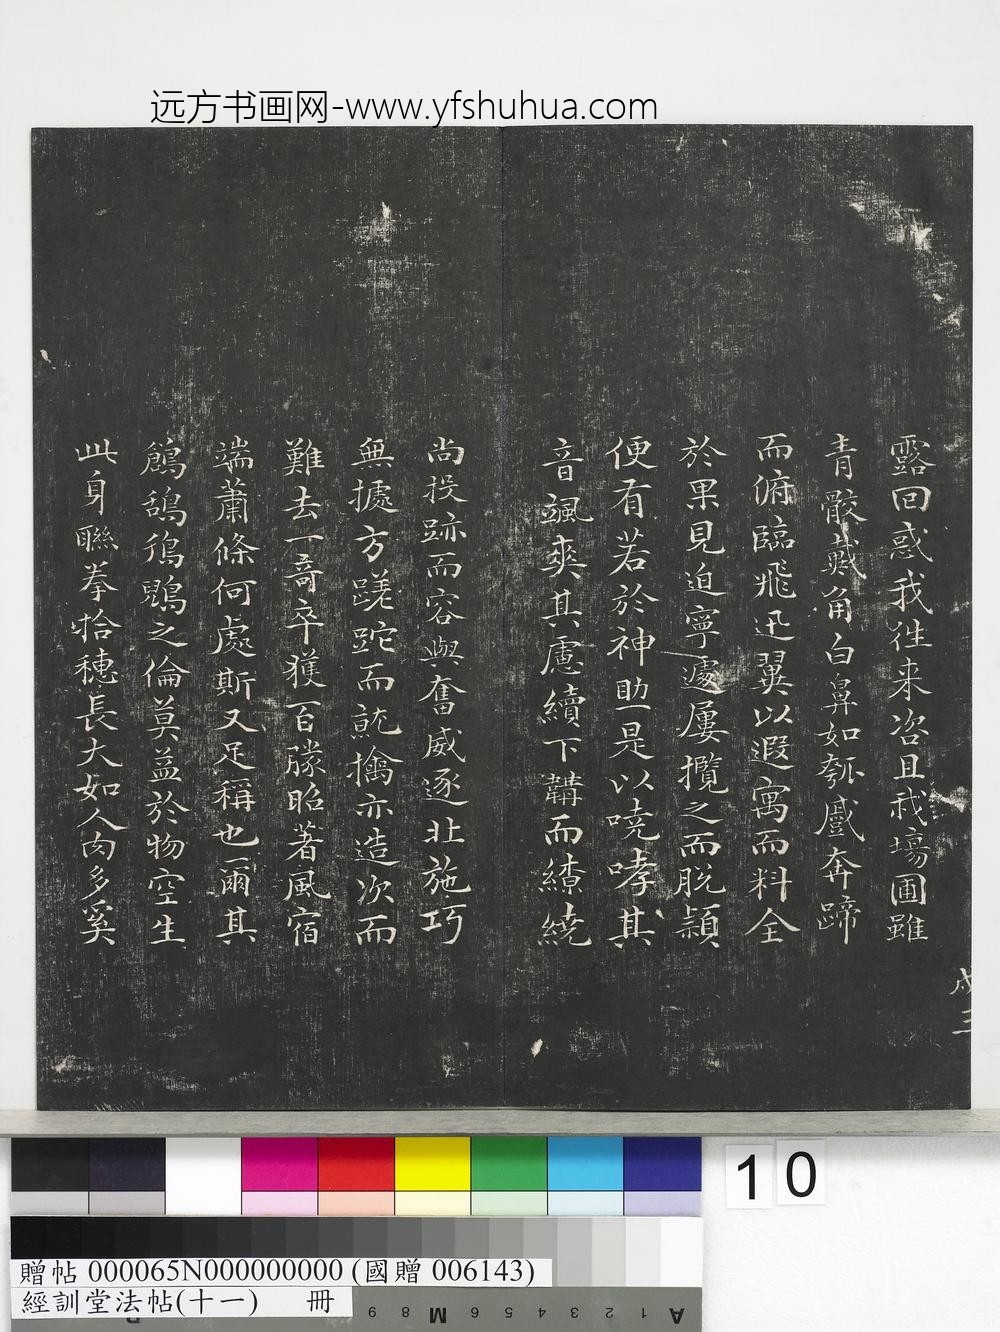 远方书画网-www.yfshuhua.com
露回惑我往来咨且我場圃雖
青骹戴角白鼻如瓠戲奔蹄
而俯臨飛迅翼以遐寓而料全
於果見迫寧遽屢攬之而脱穎
便有若於神助是以哮其
音颯爽其慮續下鞲而繚繞
尚投跡而容與奮威逐北施巧
無據方蹉跎而就擒亦造次而
難去一奇卒獲百勝昭著風宿
端蕭條何處斯又足稱也爾其
鶬鴰鳵鶂之倫莫益於物空生
此身聯拳拾穗長大如人肉多奚
戍三
10
贈帖 000065N000000000 (國贈 006143)
經訓堂法帖(十一) 冊
A 1 2 3 4 5 6 M 8 9